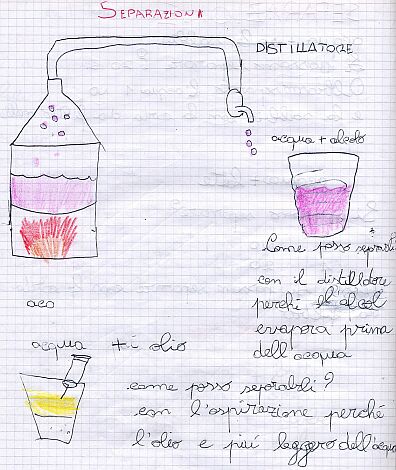 SEPARAZIONI
DISTILLATORE
acqua + alcol
Come posso separarli
con il distillatore
perché l'alcol
evapora prima
dell'acqua
aco
acqua + i olio
come posso separarli?
con l'aspirazione perché
l'olio e piú leggero dell'acqua